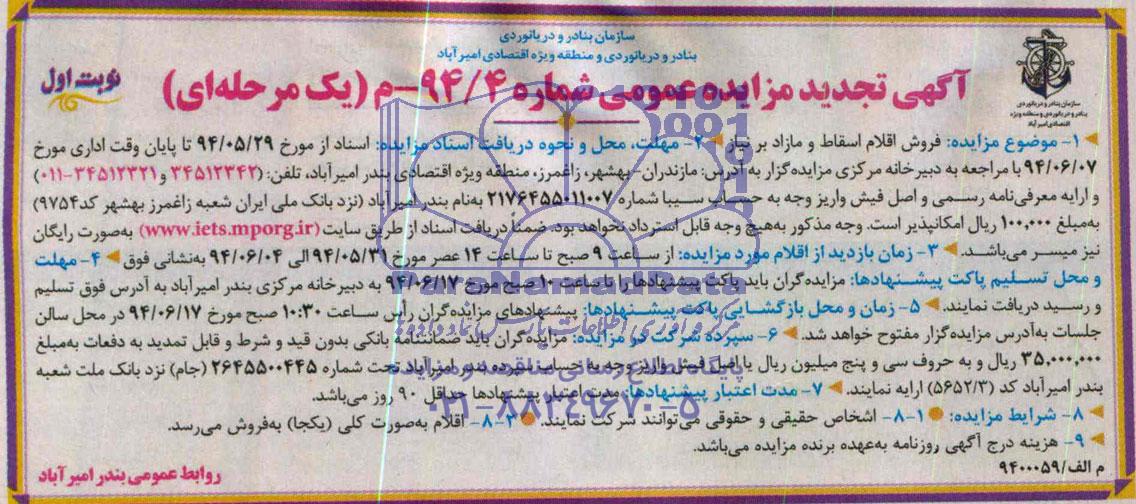 سازمان بنادر و دریانوردی
بنادر و دریانوردی و منطقه ویژه اقتصادی امیرآباد
سازمان بنادر و دریانوردی
بنادر و دریانوردی و منطقه ویژه
اقتصادی امیرآباد
آگهی تجدید مزایده عمومی شماره ۹۴/۴-م (یک مرحله‌ای)
نوبت اول
۱- موضوع مزایده: فروش اقلام اسقاط و مازاد بر نیاز ۲- مهلت، محل و نحوه دریافت اسناد مزایده: اسناد از مورخ ۹۴/۰۵/۲۹ تا پایان وقت اداری مورخ
۹۴/۰۶/۰۷ با مراجعه به دبیرخانه مرکزی مزایده‌گزار به آدرس: مازندران-بهشهر، زاغمرز، منطقه ویژه اقتصادی بندر امیرآباد، تلفن: (۳۴۵۱۲۳۴۲ و ۳۴۵۱۲۳۲۱-۰۱۱)
و ارایه معرفی‌نامه رسمی و اصل فیش واریز وجه به حساب سیبا شماره ۲۱۷۶۴۵۵۰۱۱۰۰۷ به‌نام بندر امیرآباد (نزد بانک ملی ایران شعبه زاغمرز بهشهر کد ۹۷۵۴)
به‌مبلغ ۱۰۰,۰۰۰ ریال امکانپذیر است. وجه مذکور به‌هیچ وجه قابل استرداد نخواهد بود. ضمناً دریافت اسناد از طریق سایت (www.iets.mporg.ir) به‌صورت رایگان
نیز میسر می‌باشد. ۳- زمان بازدید از اقلام مورد مزایده: از ساعت ۹ صبح تا ساعت ۱۴ عصر مورخ ۹۴/۰۵/۳۱ الی ۹۴/۰۶/۰۴ به‌نشانی فوق ۴- مهلت
و محل تسلیم پاکت پیشنهادها: مزایده‌گران باید پاکت پیشنهادها را تا ساعت ۱۰ صبح مورخ ۹۴/۰۶/۱۷ به دبیرخانه مرکزی بندر امیرآباد به آدرس فوق تسلیم
و رسید دریافت نمایند. ۵- زمان و محل بازگشایی پاکت پیشنهادها: پیشنهادهای مزایده‌گران رأس ساعت ۱۰:۳۰ صبح مورخ ۹۴/۰۶/۱۷ در محل سالن
جلسات به‌آدرس مزایده‌گزار مفتوح خواهد شد. ۶- سپرده شرکت در مزایده: مزایده‌گران باید ضمانتنامه بانکی بدون قید و شرط و قابل تمدید به دفعات به‌مبلغ
۳۵,۰۰۰,۰۰۰ ریال و به حروف سی و پنج میلیون ریال یا اصل فیش واریز وجه به حساب سپرده بندر امیرآباد تحت شماره ۲۶۴۵۵۰۰۴۴۵ (جام) نزد بانک ملت شعبه
بندر امیرآباد کد (۵۶۵۲/۳) ارایه نمایند. ۷- مدت اعتبار پیشنهادها: مدت اعتبار پیشنهادها حداقل ۹۰ روز می‌باشد.
۸- شرایط مزایده: ۱-۸- اشخاص حقیقی و حقوقی می‌توانند شرکت نمایند. ۲-۸- اقلام به‌صورت کلی (یکجا) به‌فروش می‌رسد.
۹- هزینه درج آگهی روزنامه به‌عهده برنده مزایده می‌باشد.
م الف/۹۴۰۰۰۵۹
روابط عمومی بندر امیرآباد
ParsNamadData
۰۲۱-۸۸۳۴۹۶۷۰-۵